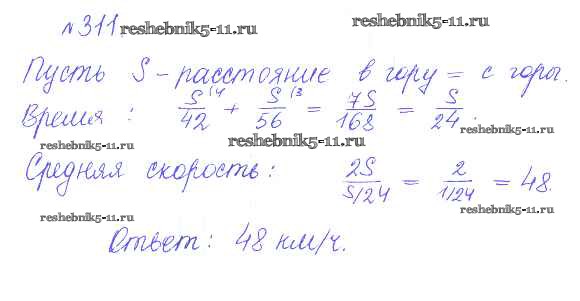 №311 reshebnik5-11.ru reshebnik5-11.ru
Пусть S - расстояние в гору = с горы.
Время: S/42 (4 + S/56 (3 = 7S/168 = S/24.
reshebnik5-11.ru
Средняя скорость: 2S/(S/24) = 2/(1/24) = 48.
reshebnik5-11.ru reshebnik5-11.ru
Ответ: 48 км/ч.